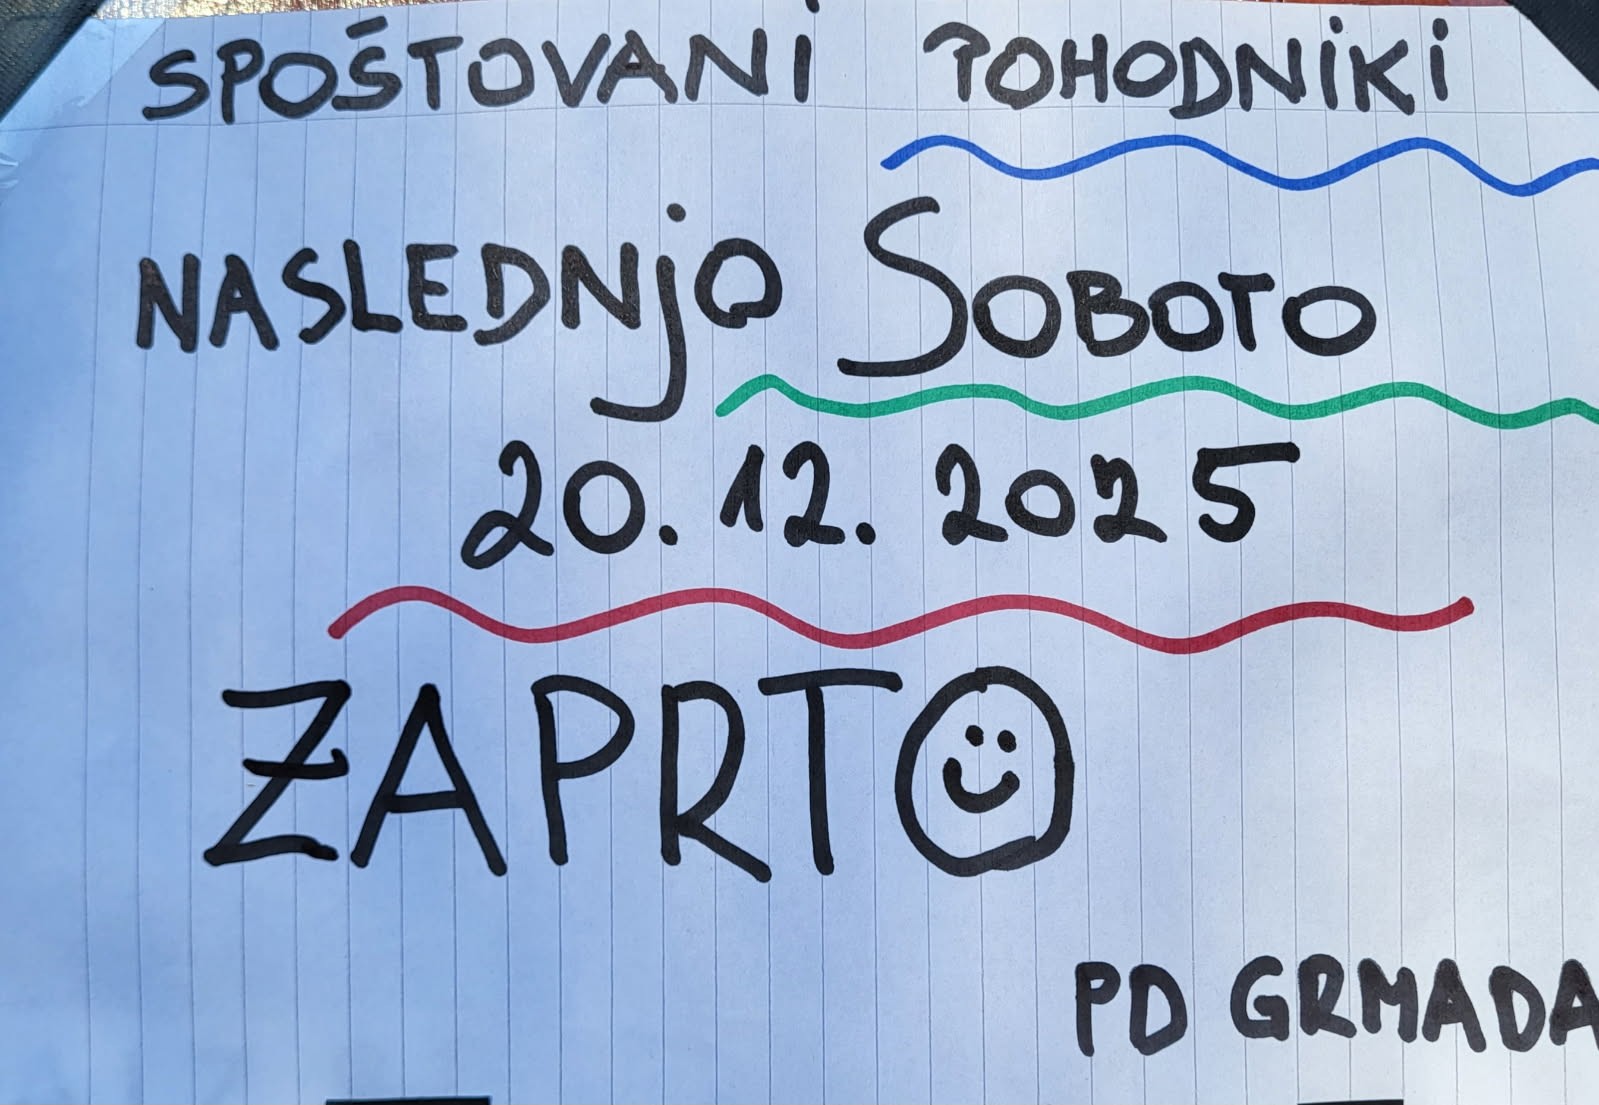 SPOŠTOVANI POHODNIKI
NASLEDNJO SOBOTO
20.12.2025
ZAPRTO
PD GRMADA